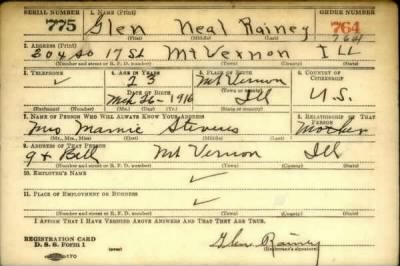 SERIAL NUMBER 1. NAME (Print) ORDER NUMBER
775 Glen Neal Rainey 764
(First) (Middle) (Last)
2. ADDRESS (Print)
304 So 17 St Mt Vernon Ill
(Number and street or R. F. D. number) (Town) (County) (State)
3. TELEPHONE 4. AGE IN YEARS 5. PLACE OF BIRTH 6. COUNTRY OF CITIZENSHIP
✓ 23 Mt Vernon
DATE OF BIRTH (Town or county)
26-1916 Ill U.S.
(Exchange) (No.) (Mo.) (Day) (Yr.) (State or country)
7. NAME OF PERSON WHO WILL ALWAYS KNOW YOUR ADDRESS 8. RELATIONSHIP OF THAT PERSON
Mrs Mamie Stevens Mother
(Mr., Mrs., Miss) (First) (Middle) (Last)
9. ADDRESS OF THAT PERSON
9 + Bell Mt Vernon Ill
(Number and street or R. F. D. number) (Town) (County) (State)
10. EMPLOYER'S NAME
✓
11. PLACE OF EMPLOYMENT OR BUSINESS
✓
(Number and street or R. F. D. number) (Town) (County) (State)
I AFFIRM THAT I HAVE VERIFIED ABOVE ANSWERS AND THAT THEY ARE TRUE.
REGISTRATION CARD
D. S. S. Form 1 Glen Rainey
(Registrant's signature)